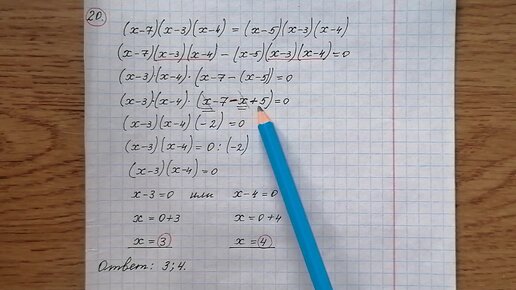 20.
(x-7)(x-3)(x-4) = (x-5)(x-3)(x-4)
(x-7)(x-3)(x-4) - (x-5)(x-3)(x-4) = 0
(x-3)(x-4)·(x-7-(x-5)) = 0
(x-3)(x-4)·(x-7-x+5) = 0
(x-3)(x-4)(-2) = 0
(x-3)(x-4) = 0:(-2)
(x-3)(x-4) = 0
x-3=0 или x-4=0
x=0+3 x=0+4
x=3 x=4
Ответ: 3;4.